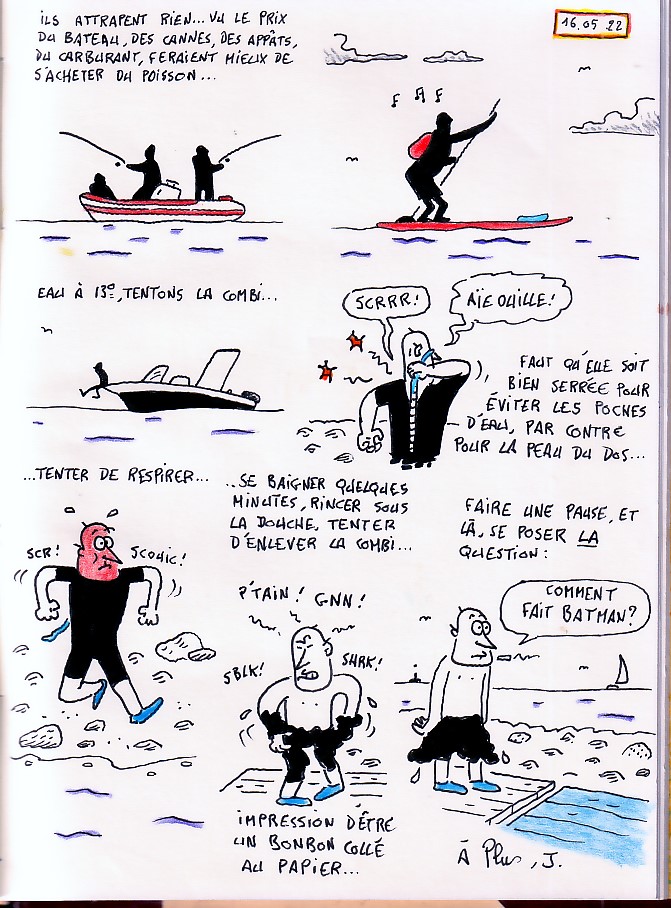 ILS ATTRAPENT RIEN... VU LE PRIX
DU BATEAU, DES CANNES, DES APPÂTS,
DU CARBURANT, FERAIENT MIEUX DE
S'ACHETER DU POISSON...
16.05 22
EAU À 13°, TENTONS LA COMBI...
SCRRR!
AÏE OUILLE!
FAUT QU'ELLE SOIT
BIEN SERRÉE POUR
ÉVITER LES POCHES
D'EAU, PAR CONTRE
POUR LA PEAU DU DOS...
...TENTER DE RESPIRER...
SCR!
SCOUIC!
..SE BAIGNER QUELQUES
MINUTES, RINCER SOUS
LA DOUCHE, TENTER
D'ENLEVER LA COMBI...
P'TAIN! GNN!
SBLK!
SHRK!
IMPRESSION D'ÊTRE
UN BONBON COLLÉ
AU PAPIER...
FAIRE UNE PAUSE, ET
LÀ, SE POSER LA
QUESTION:
COMMENT
FAIT BATMAN?
À Plus, J.